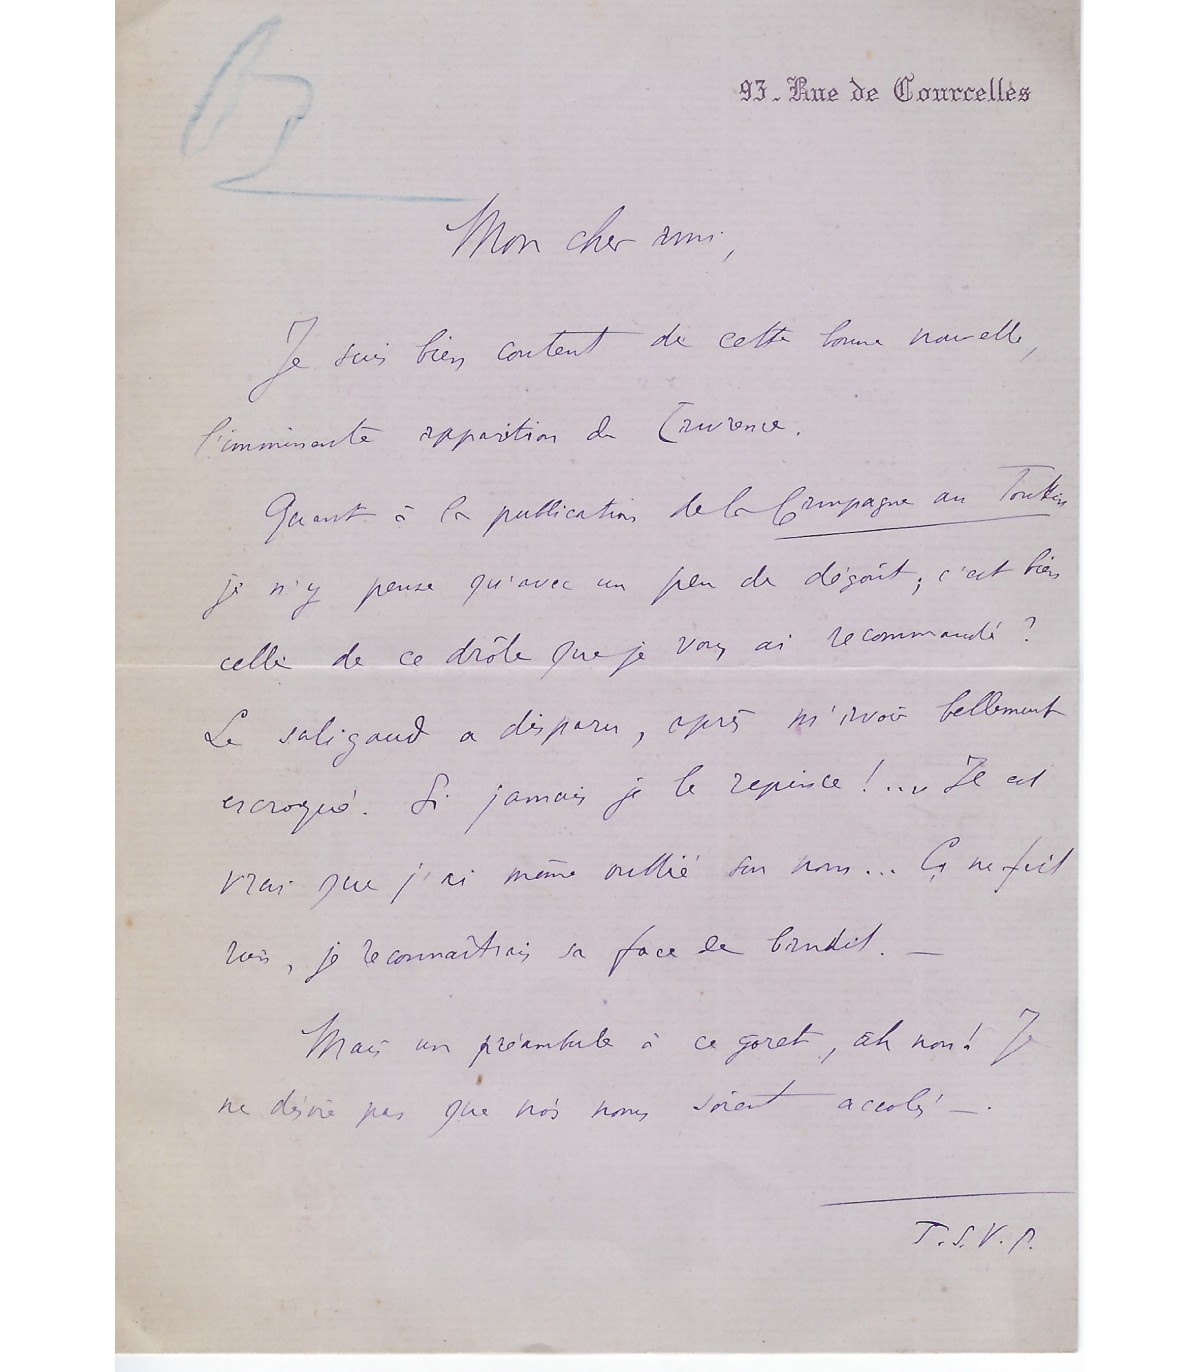 93. Rue de Courcelles
Mon cher ami,
Je suis bien content de cette bonne nouvelle,
l'imminente apparition du
Quant à la publication de la Campagne au Tonkin
je n'y pense qu'avec un peu de dégoût ; c'est bien
celle de ce drôle que je vous ai recommandé ?
Le saligaud a disparu, après m'avoir bellement
escroqué. Si jamais je le repince !... Il est
vrai que j'ai même oublié son nom... Ça ne fait
rien, je reconnaîtrais sa face de bandit. —
Mais un préambule à ce goret, ah non! Je
ne désire pas que nos noms soient accolés —.
T.S.V.P.